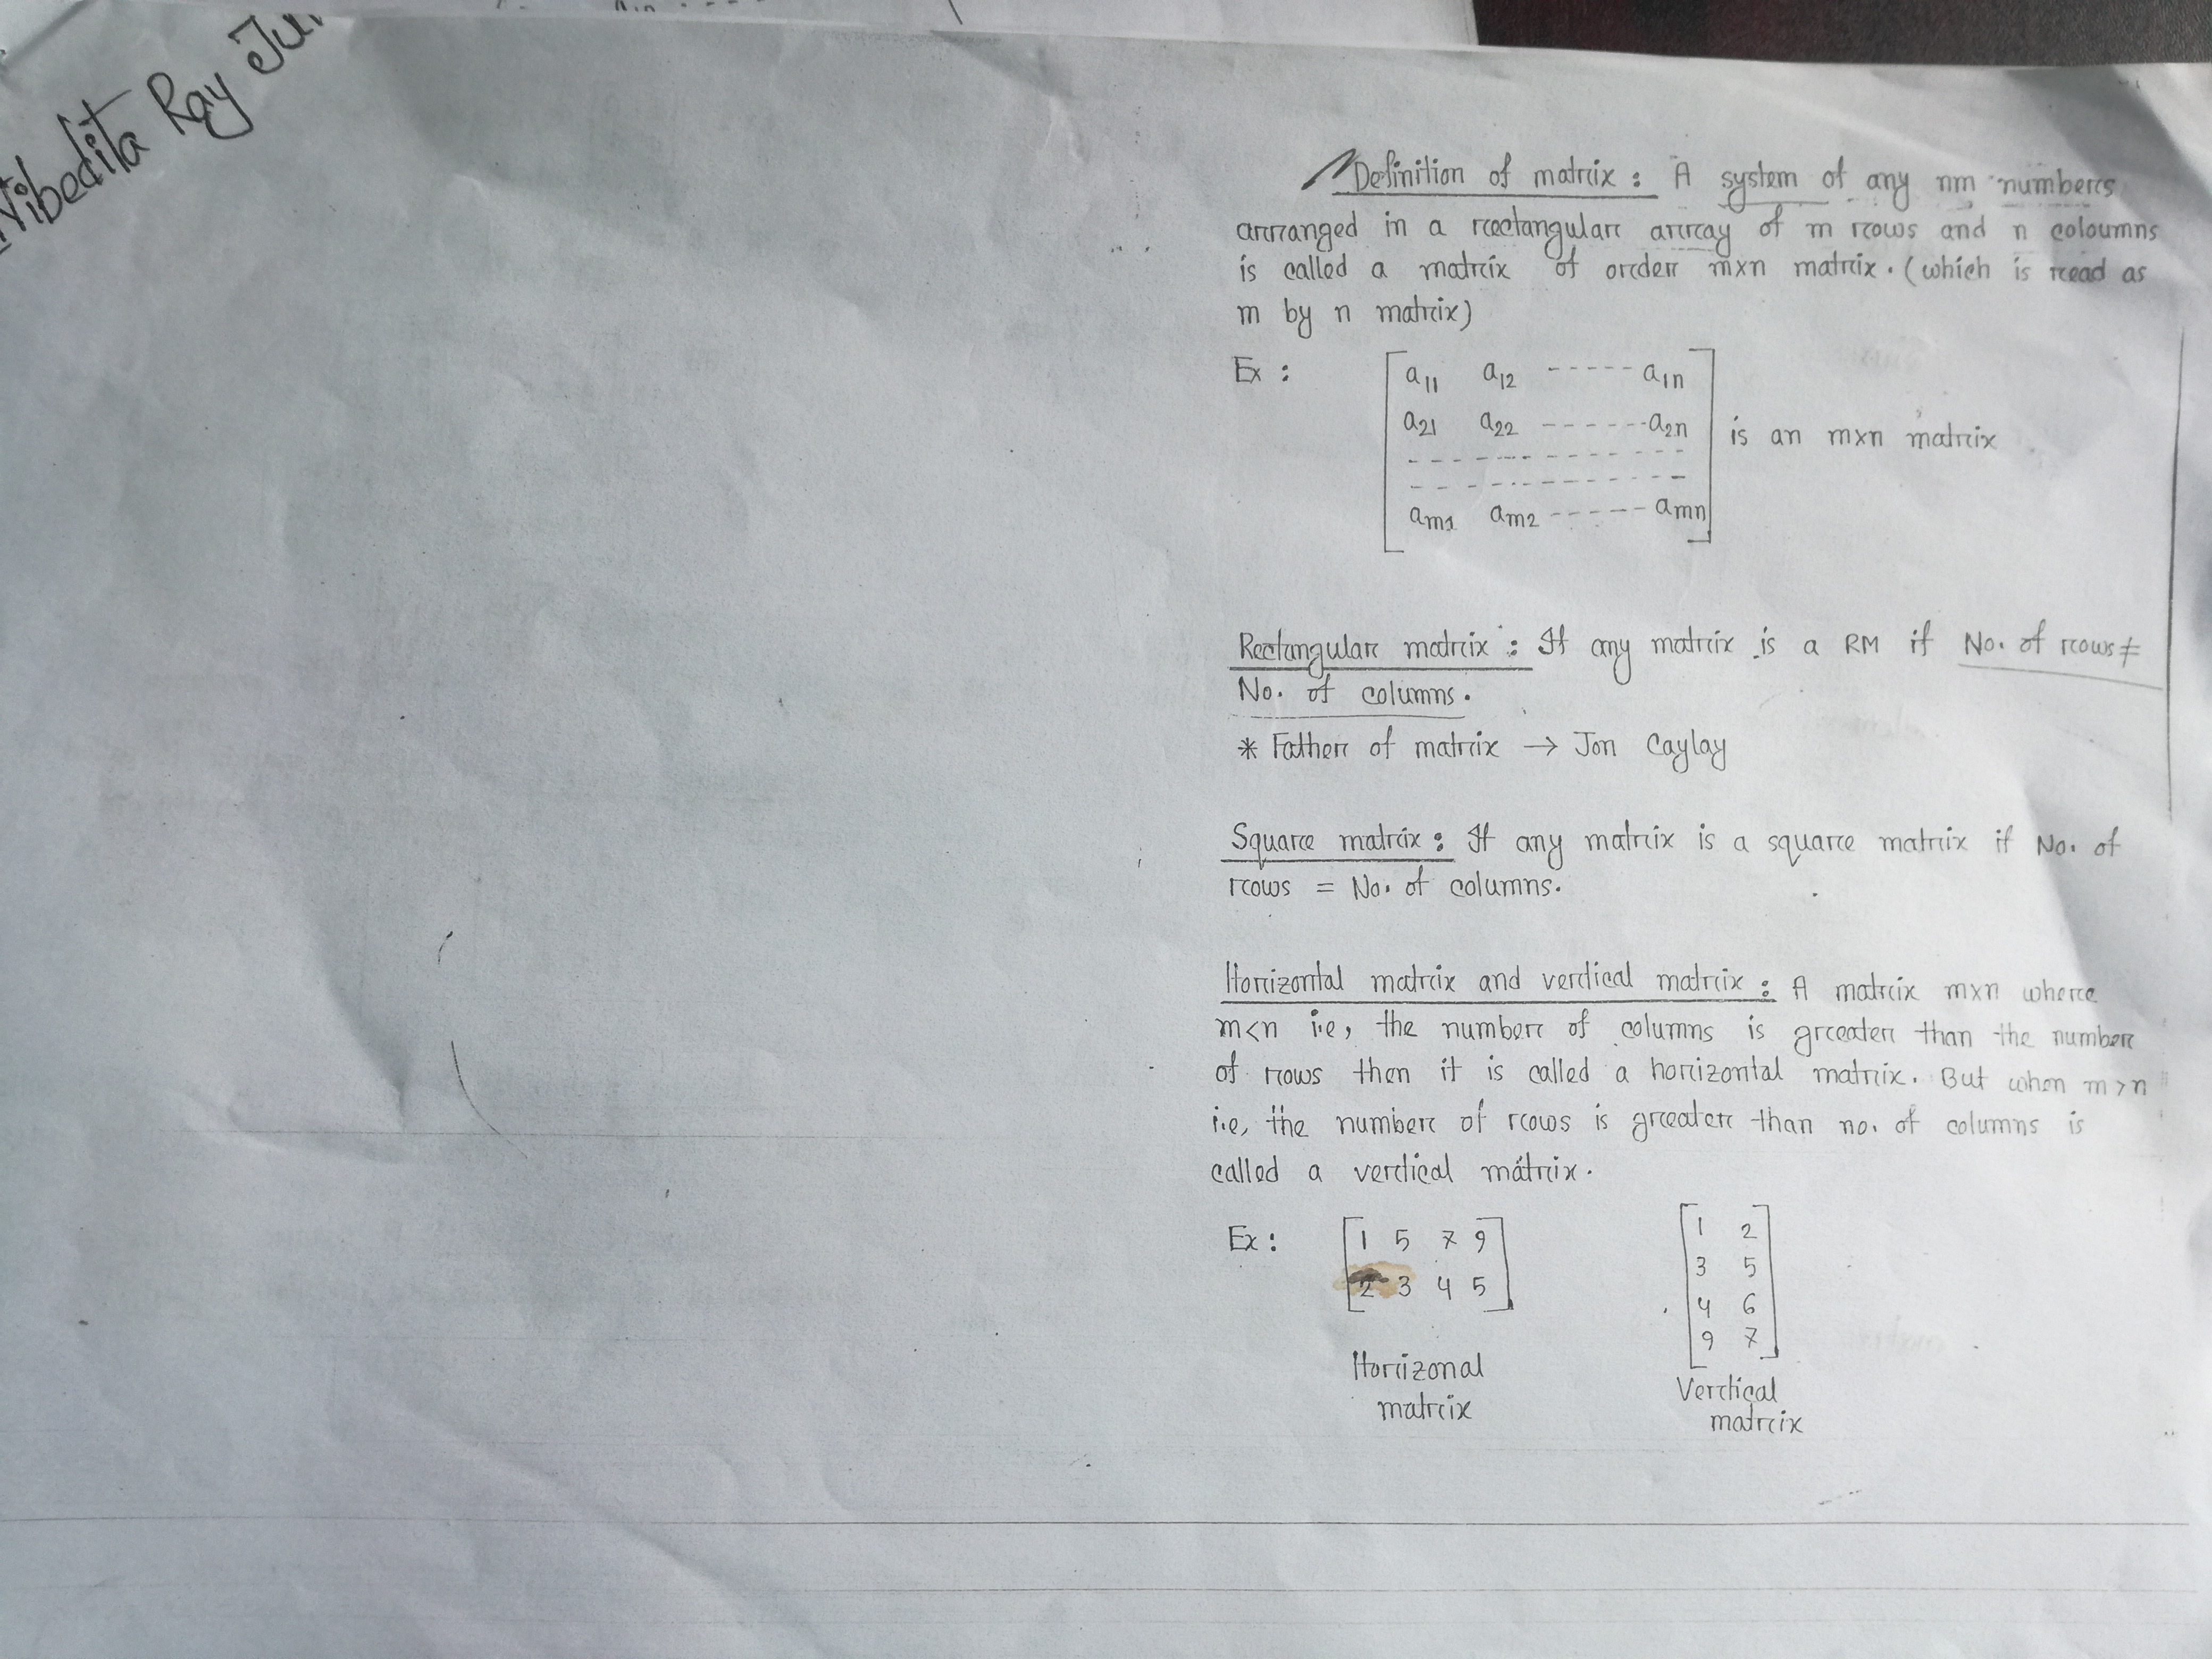 Nibedita Ray
Definition of matrix : A system of any nm numbers
arranged in a rectangular array of m rows and n coloumns
is called a matrix of order m×n matrix. (which is read as
m by n matrix)
Ex : a11 a12 ------ a1n
a21 a22 ------- a2n is an m×n matrix
am1 am2 ------ amn
Rectangular matrix : If any matrix is a RM if No. of rows ≠
No. of columns.
* Father of matrix → Jon Caylay
Square matrix : If any matrix is a square matrix if No. of
rows = No. of columns.
Horizontal matrix and vertical matrix : A matrix m×n where
m<n i.e, the number of columns is greater than the number
of rows then it is called a horizontal matrix. But when m>n
i.e, the number of rows is greater than no. of columns is
called a vertical matrix.
Ex : 1 5 7 9
2 3 4 5
Horizonal
matrix
1 2
3 5
4 6
9 7
Vertical
matrix